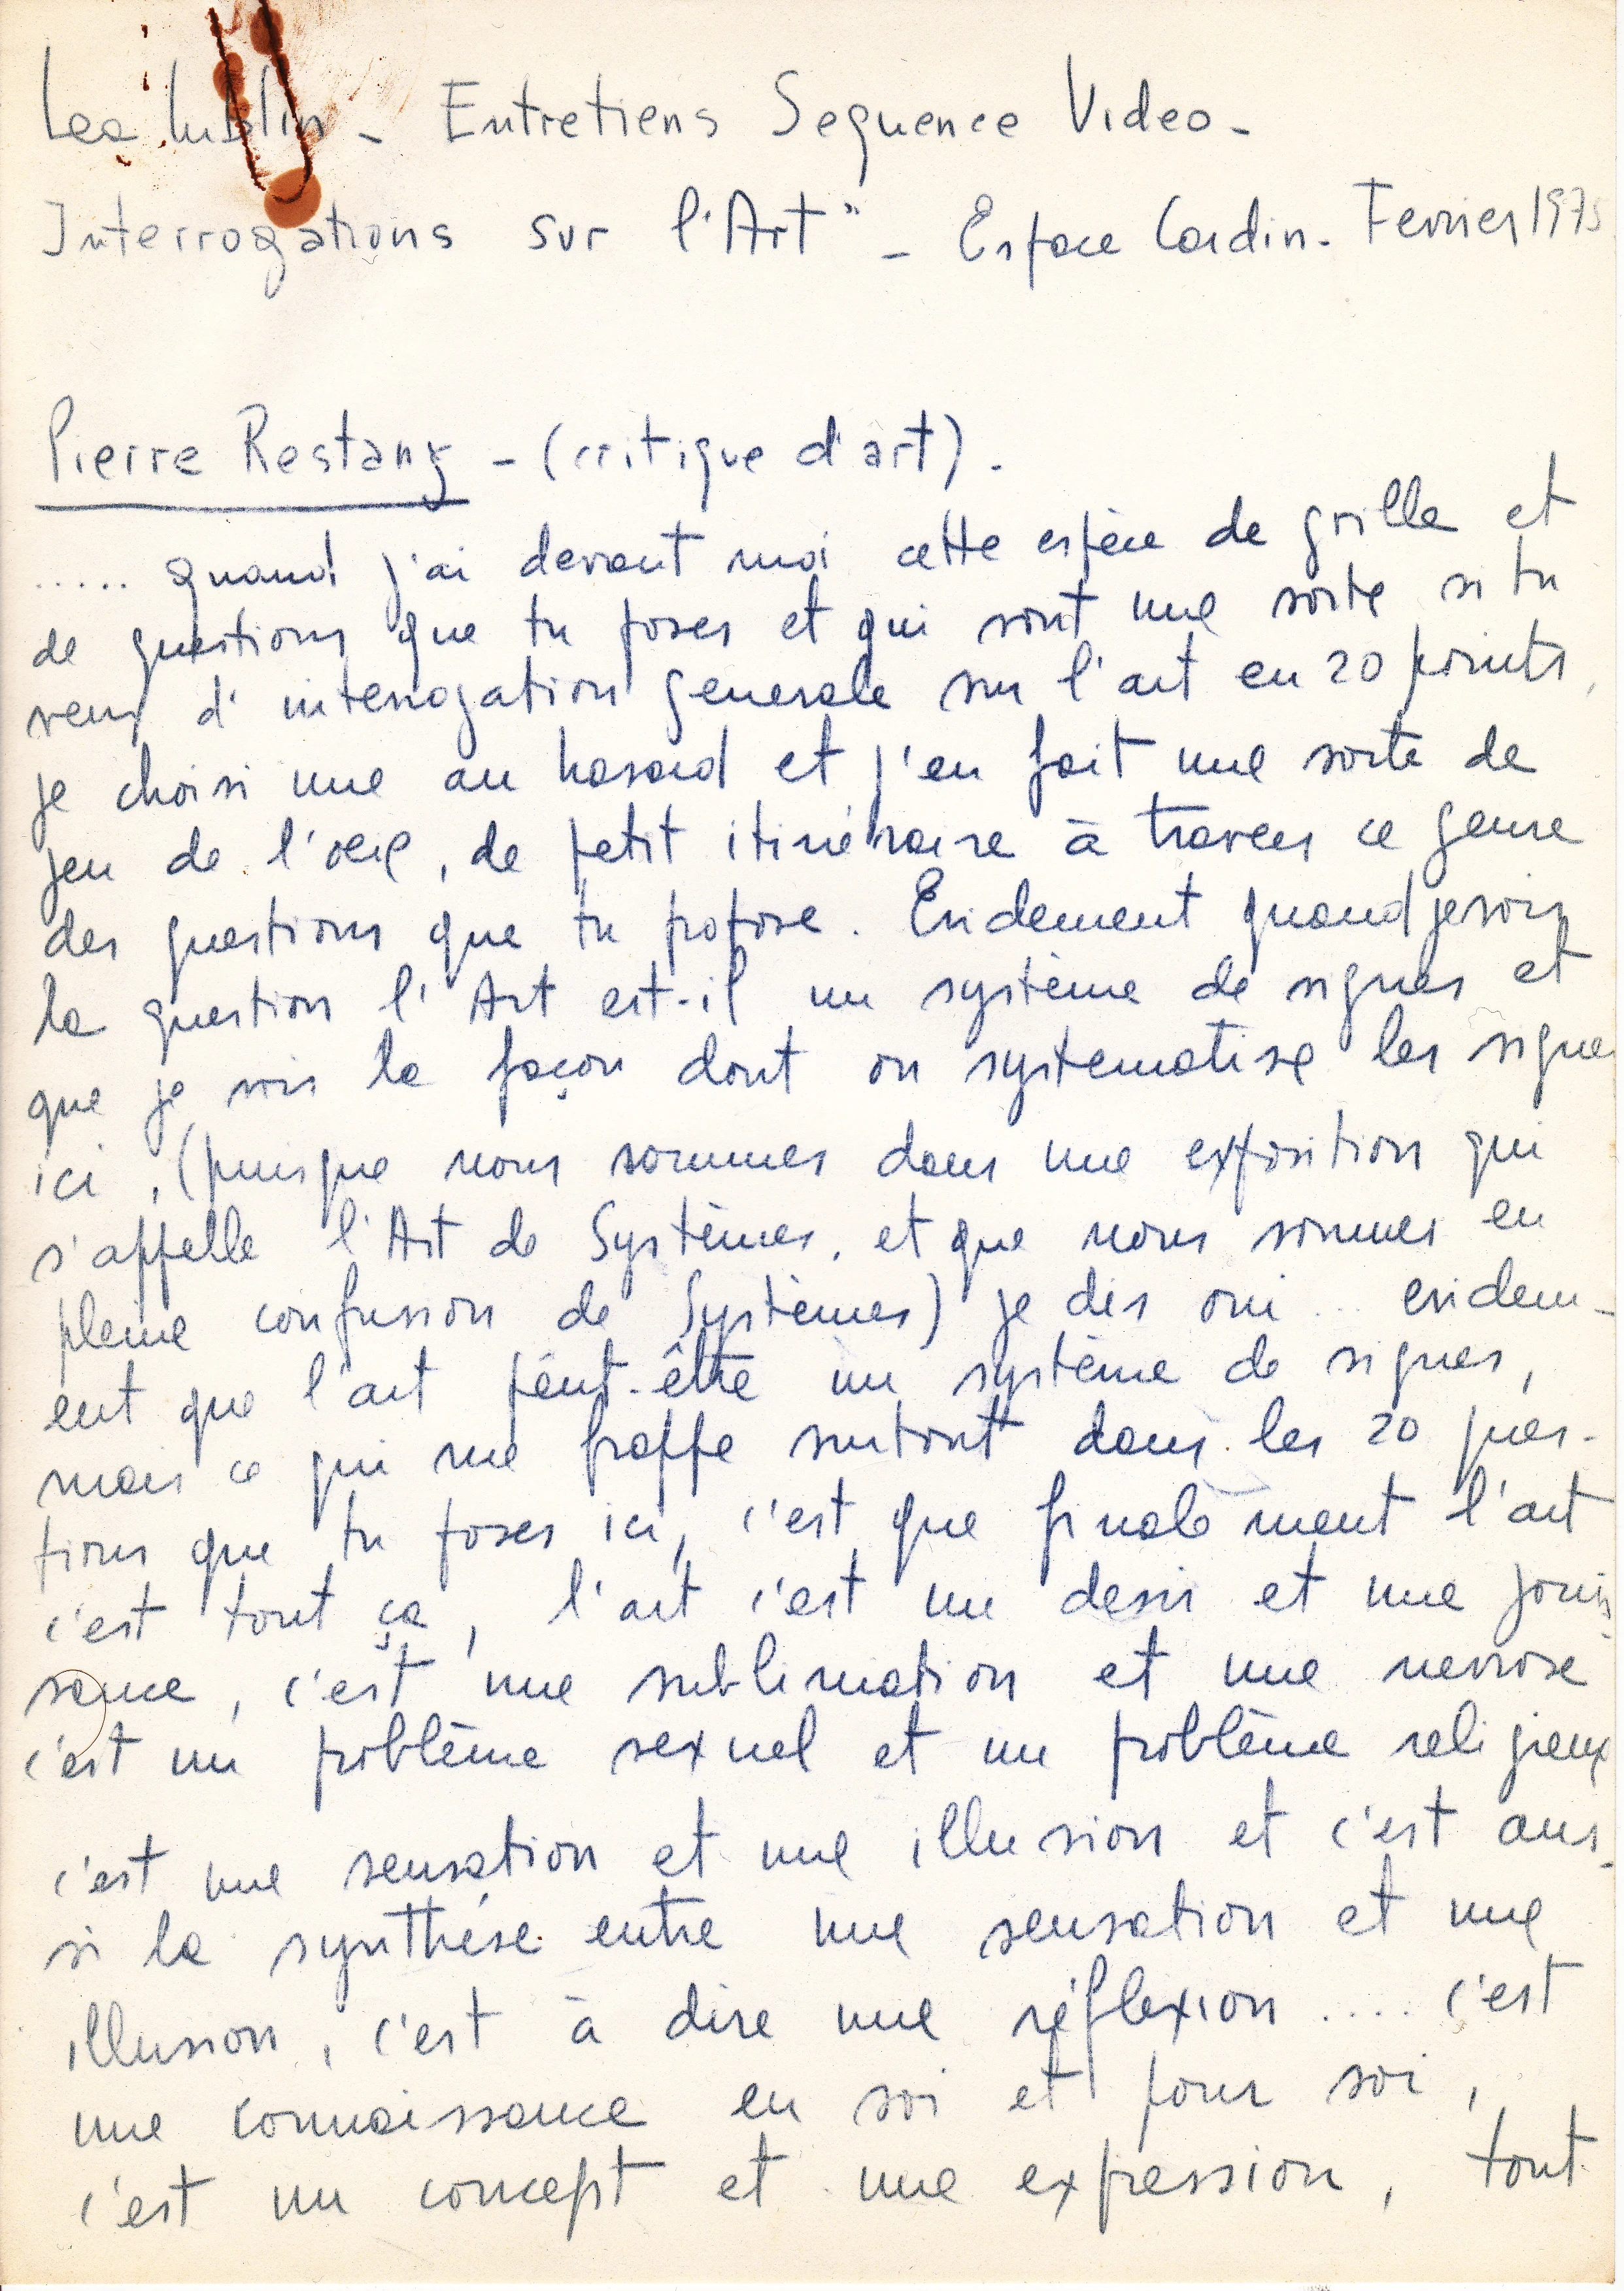 Lea Lublin - Entretiens Sequence Video -
Interrogations sur l'Art" - Espace Cardin - Fevrier 1975
Pierre Restany - (critique d'art).
..... quand j'ai devant moi cette espèce de grille et
de questions que tu poses et qui sont une sorte si tu
veux d'interrogation generale sur l'art en 20 points,
je choisi une au hasard et j'en fait une sorte de
jeu de l'oeil, de petit itinéraire à travers ce genre
des questions que tu propose. Evidement quand je vois
la question l'Art est-il un système de signes et
que je vois la façon dont on systematise les signes
ici, (puisque nous sommes dans une exposition qui
s'appelle l'Art de Systèmes, et que nous sommes en
pleine confusion de Systèmes) je dis oui... evidem-
ent que l'art peut-être un système de signes,
mais ce qui me frappe surtout dans les 20 ques-
tions que tu poses ici, c'est que finalement l'art
c'est tout ça, l'art c'est un desir et une jouis
sance, c'est une sublimation et une nevrose
c'est un problème sexuel et un problème religieux
c'est une sensation et une illusion et c'est aus-
si la synthése entre une sensation et une
illusion, c'est à dire une réflexion .... c'est
une connaissance en soi et pour soi,
c'est un concept et une expression, tout